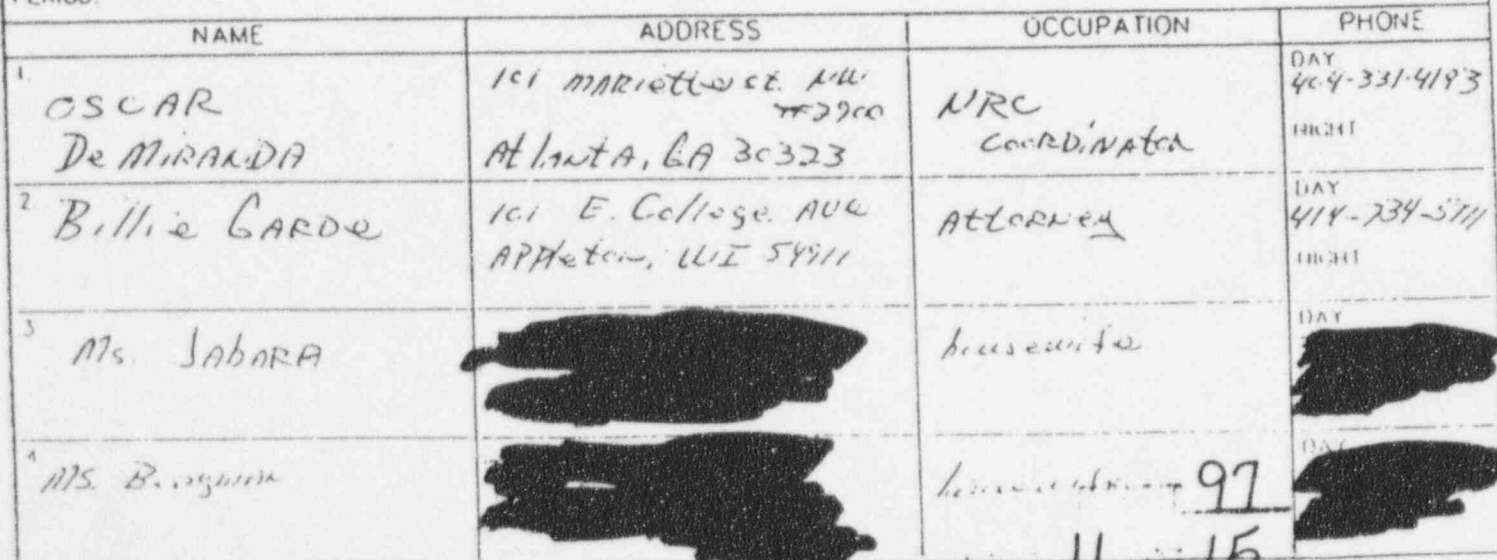 PERIOD:
NAME ADDRESS OCCUPATION PHONE
1.
OSCAR
DeMIRANDA
101 MARIetta st. NW
#2900
AtlantA, GA 30323
NRC
CooRDiNAtoR
DAY
404-331-4193
NIGHT
2.
Billie GARDe
101 E. College AVe
APPleton, WI 54911
AttoRNey
DAY
414-734-5711
NIGHT
3
Ms. JAbARA
housewife
DAY
4
MS.
97
DAY
11 15